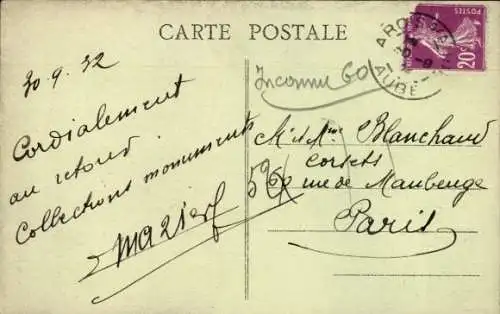 CARTE POSTALE
30.9.32
Cordialement
au retour.
Collections monuments
POSTES
20c
AUBE
Inconnu 60
M. et Mme Blanchaud
corsets
rue de Maubeuge
Paris